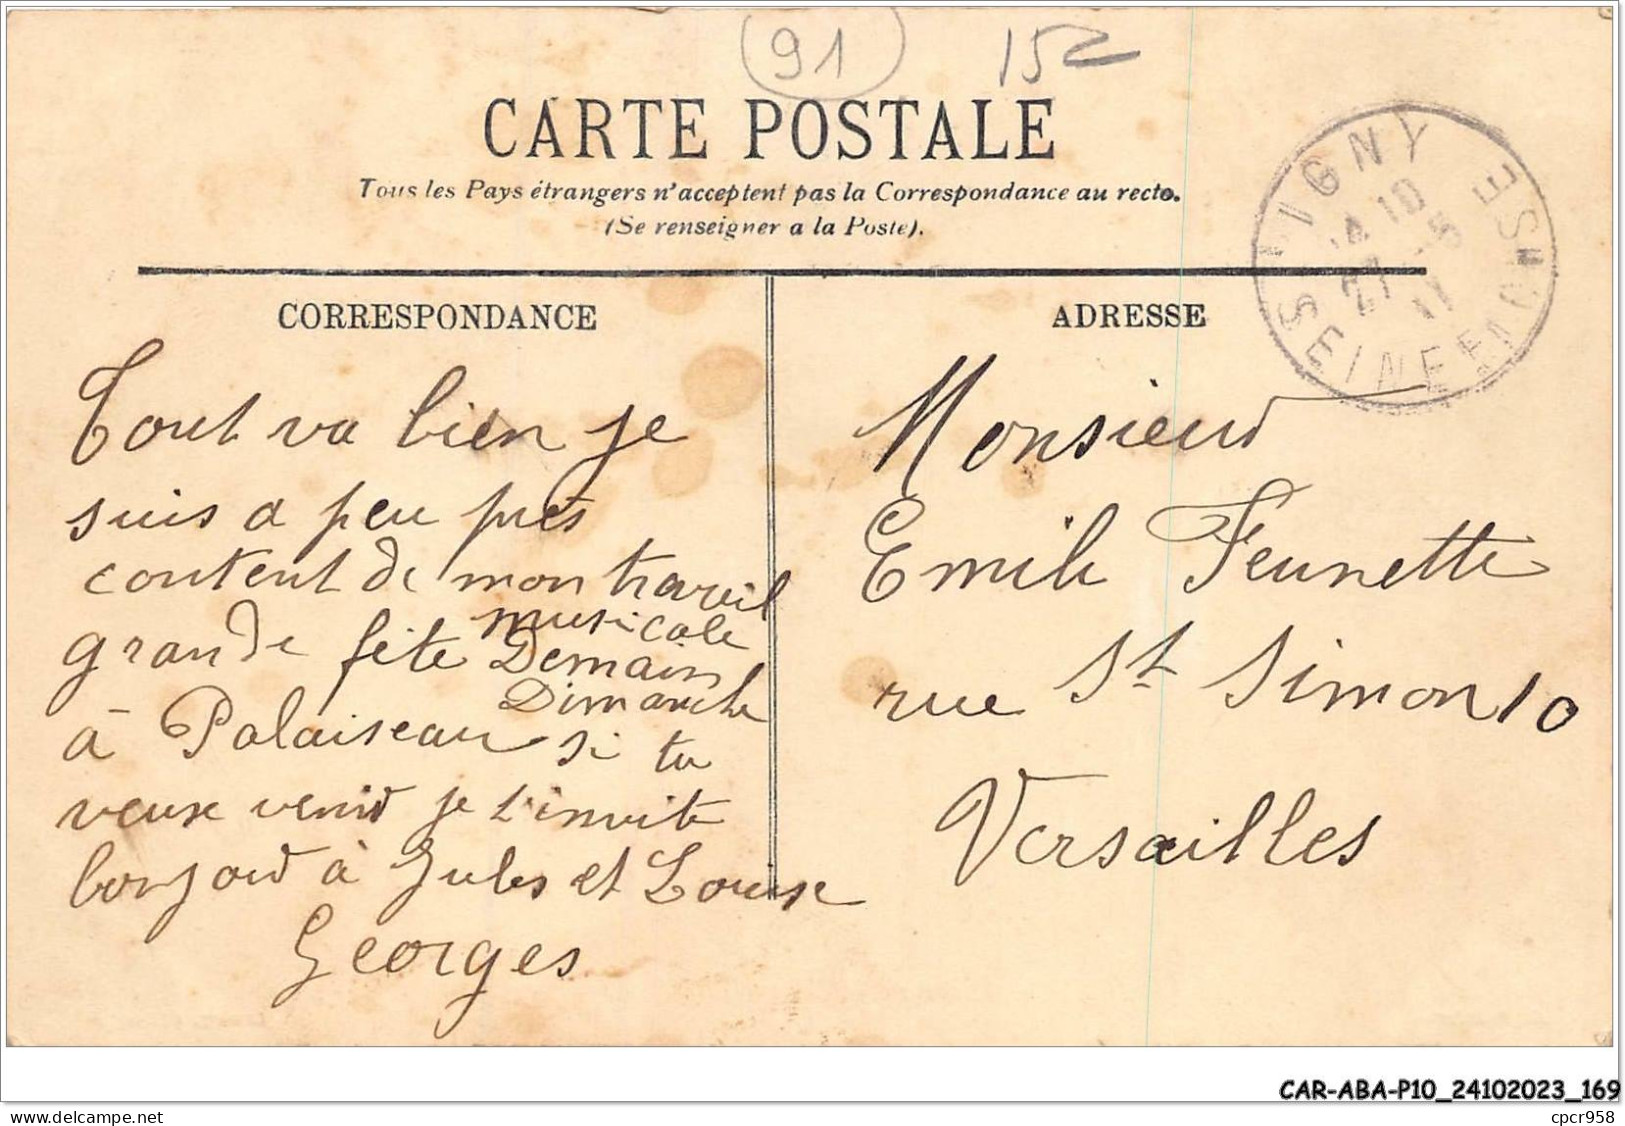 91
152
CARTE POSTALE
Tous les Pays étrangers n'acceptent pas la Correspondance au recto.
(Se renseigner a la Poste).
IGNY
SEINE ET OISE
27 -5
11
CORRESPONDANCE
Tout va bien je
suis a peu près
content de mon travail
grande fête musicale Demain
Dimanche
à Palaiseau si tu
veux venir je t'invite
bonjour à Jules et Louise
Georges
ADRESSE
Monsieur
Emile Feunette
rue St Simon 10
Versailles
CAR-ABA-P10_24102023_169
cpcr958